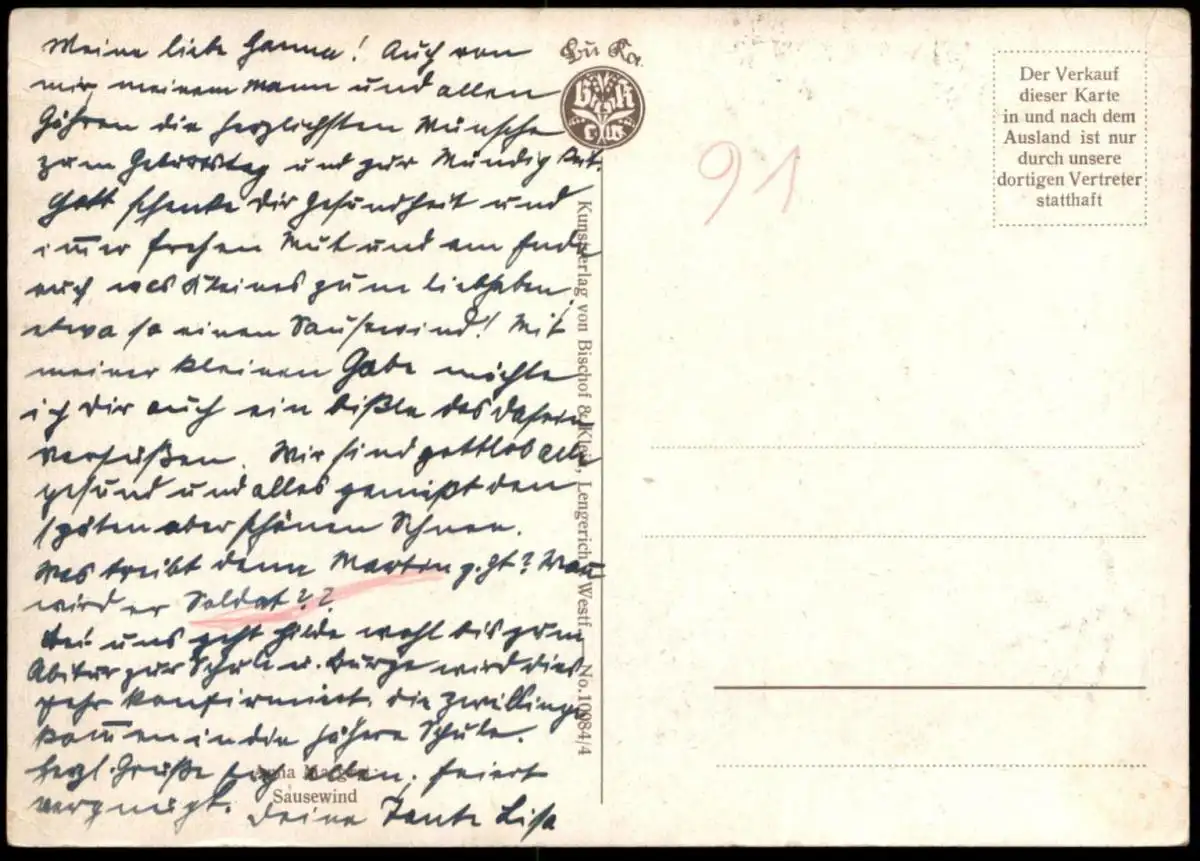 Meine liebe Hanna! Auch von
mir, meinem Mann und allen
Göhren die herzlichsten Wünsche
zum Geburtstag und zur Mündigkeit.
Gott schenke Dir Gesundheit und
immer frohen Mut und am Ende
auch was Kleines zum liebhaben,
etwa so einen Sausewind! Mit
meiner kleinen Gabe möchte
ich Dir auch ein bißle das Dasein
versüßen. Wir sind gottlob alle
gesund und alles genießt den
späten aber schönen Schnee.
Was treibt denn Martin z. Zt? Wann
wird er Soldat??
Bei uns geht Hilde wohl bis zum
Abitur zur Schule u. wird dies
Jahr konfirmiert. die Zwillinge
kommen in die höhere Schule.
Herzl. Grüße Euch allen, feiert
vergnügt. Deine Tante Lisa
Sausewind
BuKa
B K
Kunstverlag von Bischof & Klein, Lengerich i. Westf. No. 10084/4
91
Der Verkauf
dieser Karte
in und nach dem
Ausland ist nur
durch unsere
dortigen Vertreter
statthaft